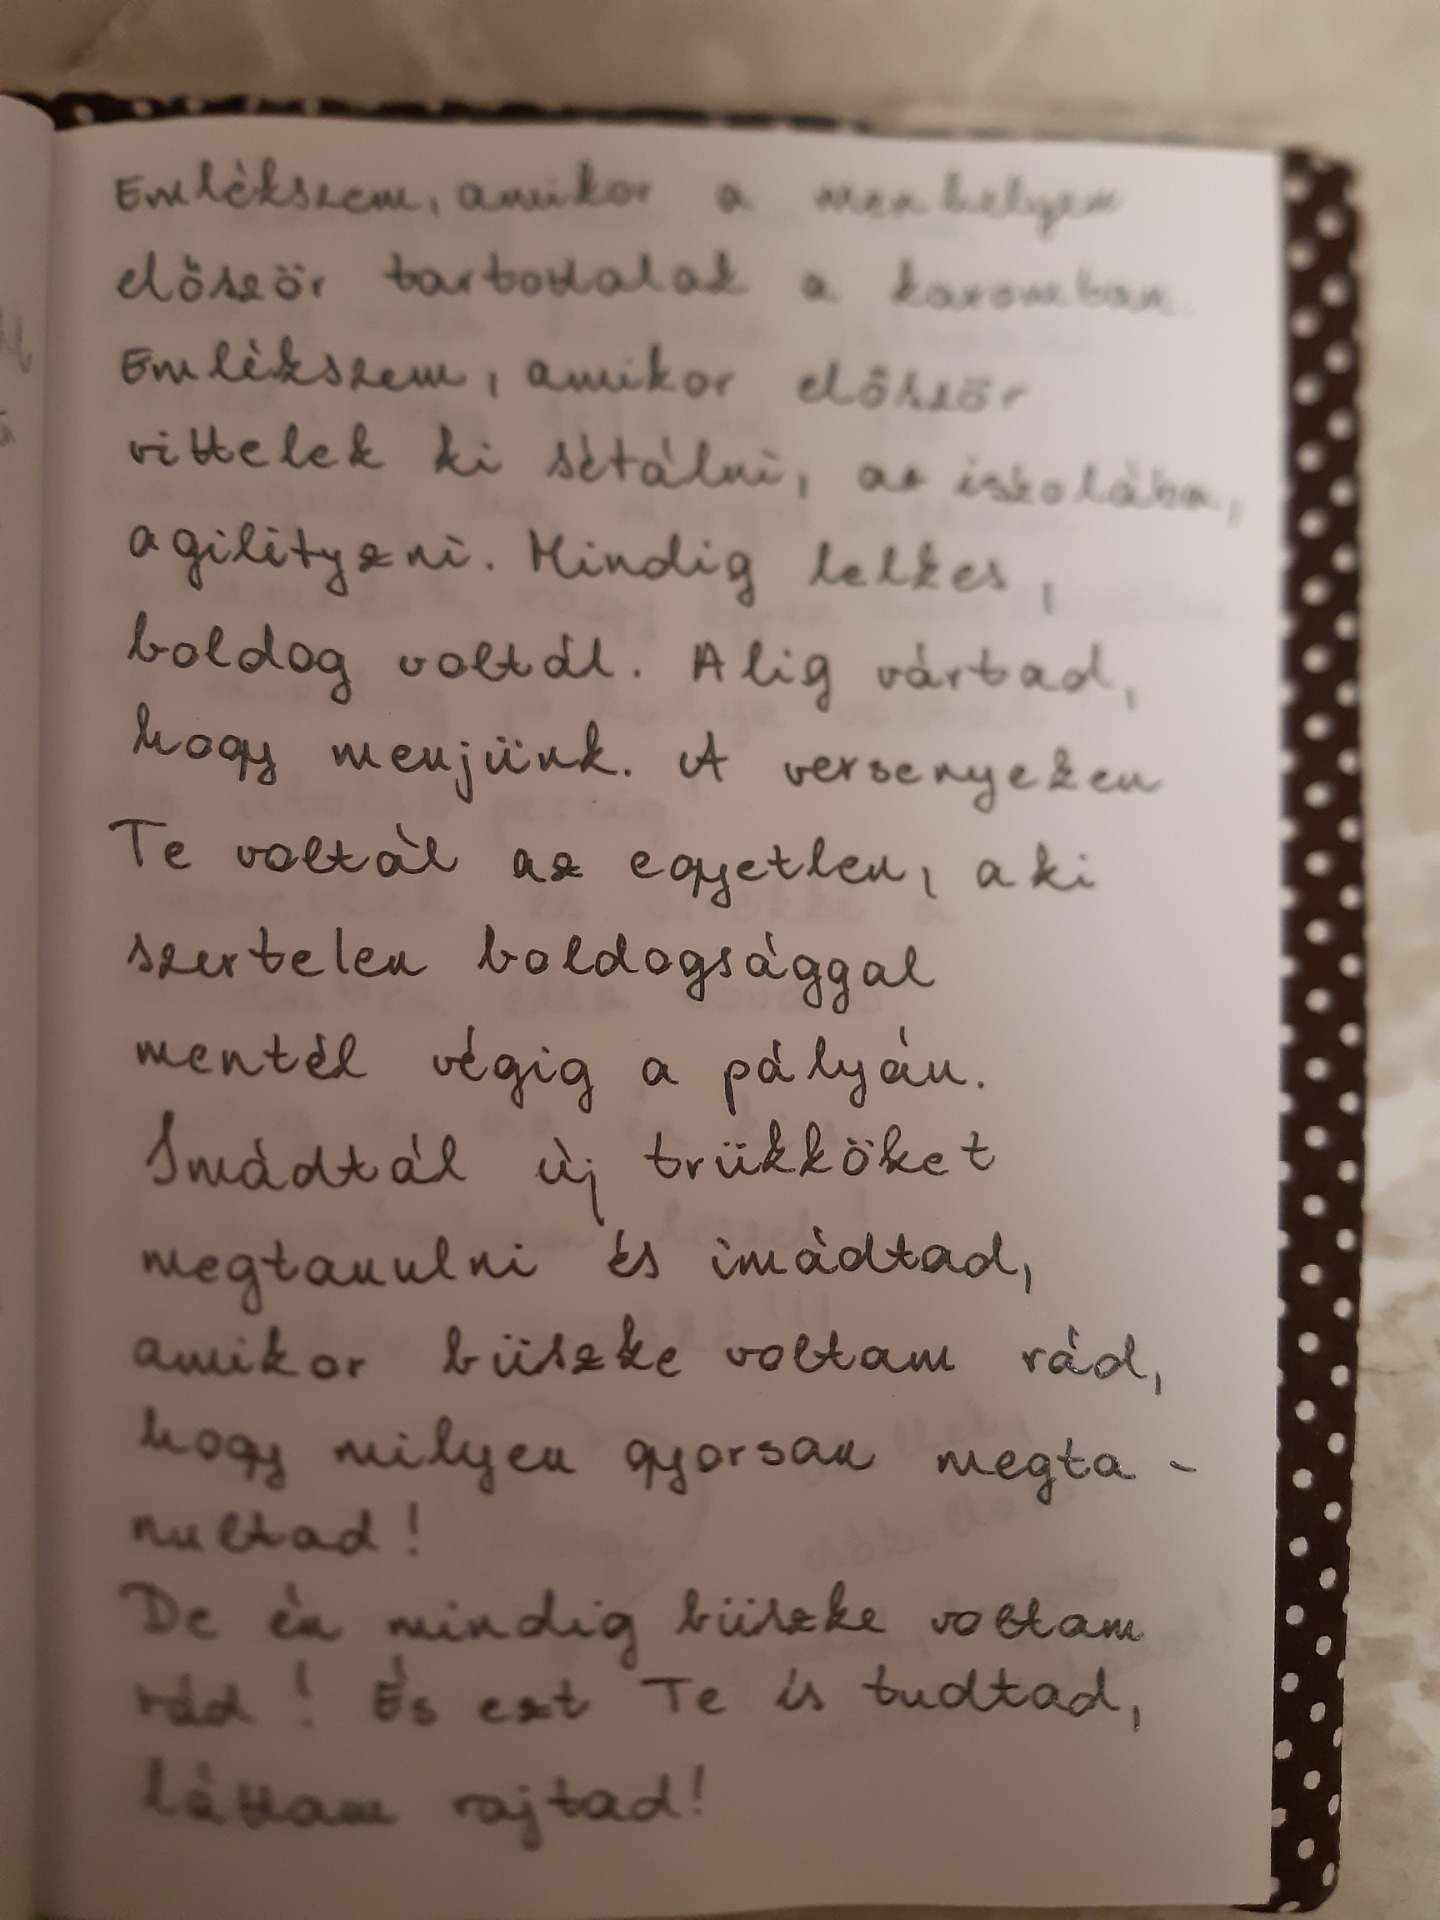 Emlékszem, amikor a menhelyen
először tartottalak a karomban.
Emlékszem, amikor először
vittelek ki sétálni, az iskolába,
agilityzni. Mindig lelkes,
boldog voltál. Alig vártad,
hogy menjünk. A versenyeken
Te voltál az egyetlen, aki
szertelen boldogsággal
mentél végig a pályán.
Imádtál új trükköket
megtanulni és imádtad,
amikor büszke voltam rád,
hogy milyen gyorsan megta-
nultad!
De én mindig büszke voltam
rád! És ezt Te is tudtad,
láttam rajtad!